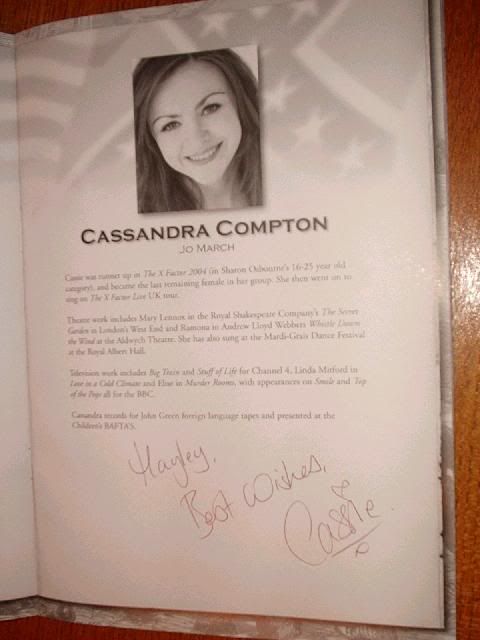 CASSANDRA COMPTON
JO MARCH
Cassie was runner up in The X Factor 2004 (in Sharon Osbourne's 16-25 year old
category), and became the last remaining female in her group. She then went on to
sing on The X Factor Live UK tour.
Theatre work includes Mary Lennox in the Royal Shakespeare Company's The Secret
Garden in London's West End and Ramona in Andrew Lloyd Webbers Whistle Down
the Wind at the Aldwych Theatre. She has also sung at the Mardi-Grais Dance Festival
at the Royal Albert Hall.
Television work includes Big Train and Stuff of Life for Channel 4, Linda Mitford in
Love in a Cold Climate and Elise in Murder Rooms, with appearances on Smile and Top
of the Pops all for the BBC.
Cassandra records for John Green foreign language tapes and presented at the
Children's BAFTA'S.
Hayley,
Best Wishes,
Cassie
x